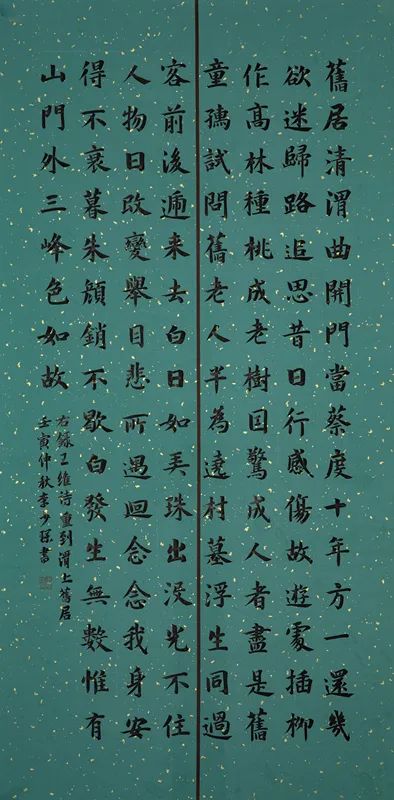 舊居清渭曲開門當蔡度十年方一還幾
欲迷歸路追思昔日行感傷故遊處插柳
作高林種桃成老樹因驚成人者盡是舊
童孺試問舊老人半為遶村墓浮生同過
客前後遞来去白日如弄珠出沒光不住
人物日改變舉目悲所遇迴念念我身安
得不衰暮朱顏銷不歇白發生無數惟有
山門外三峰色如故
右錄王維詩重到渭上舊居
壬寅仲秋李少書